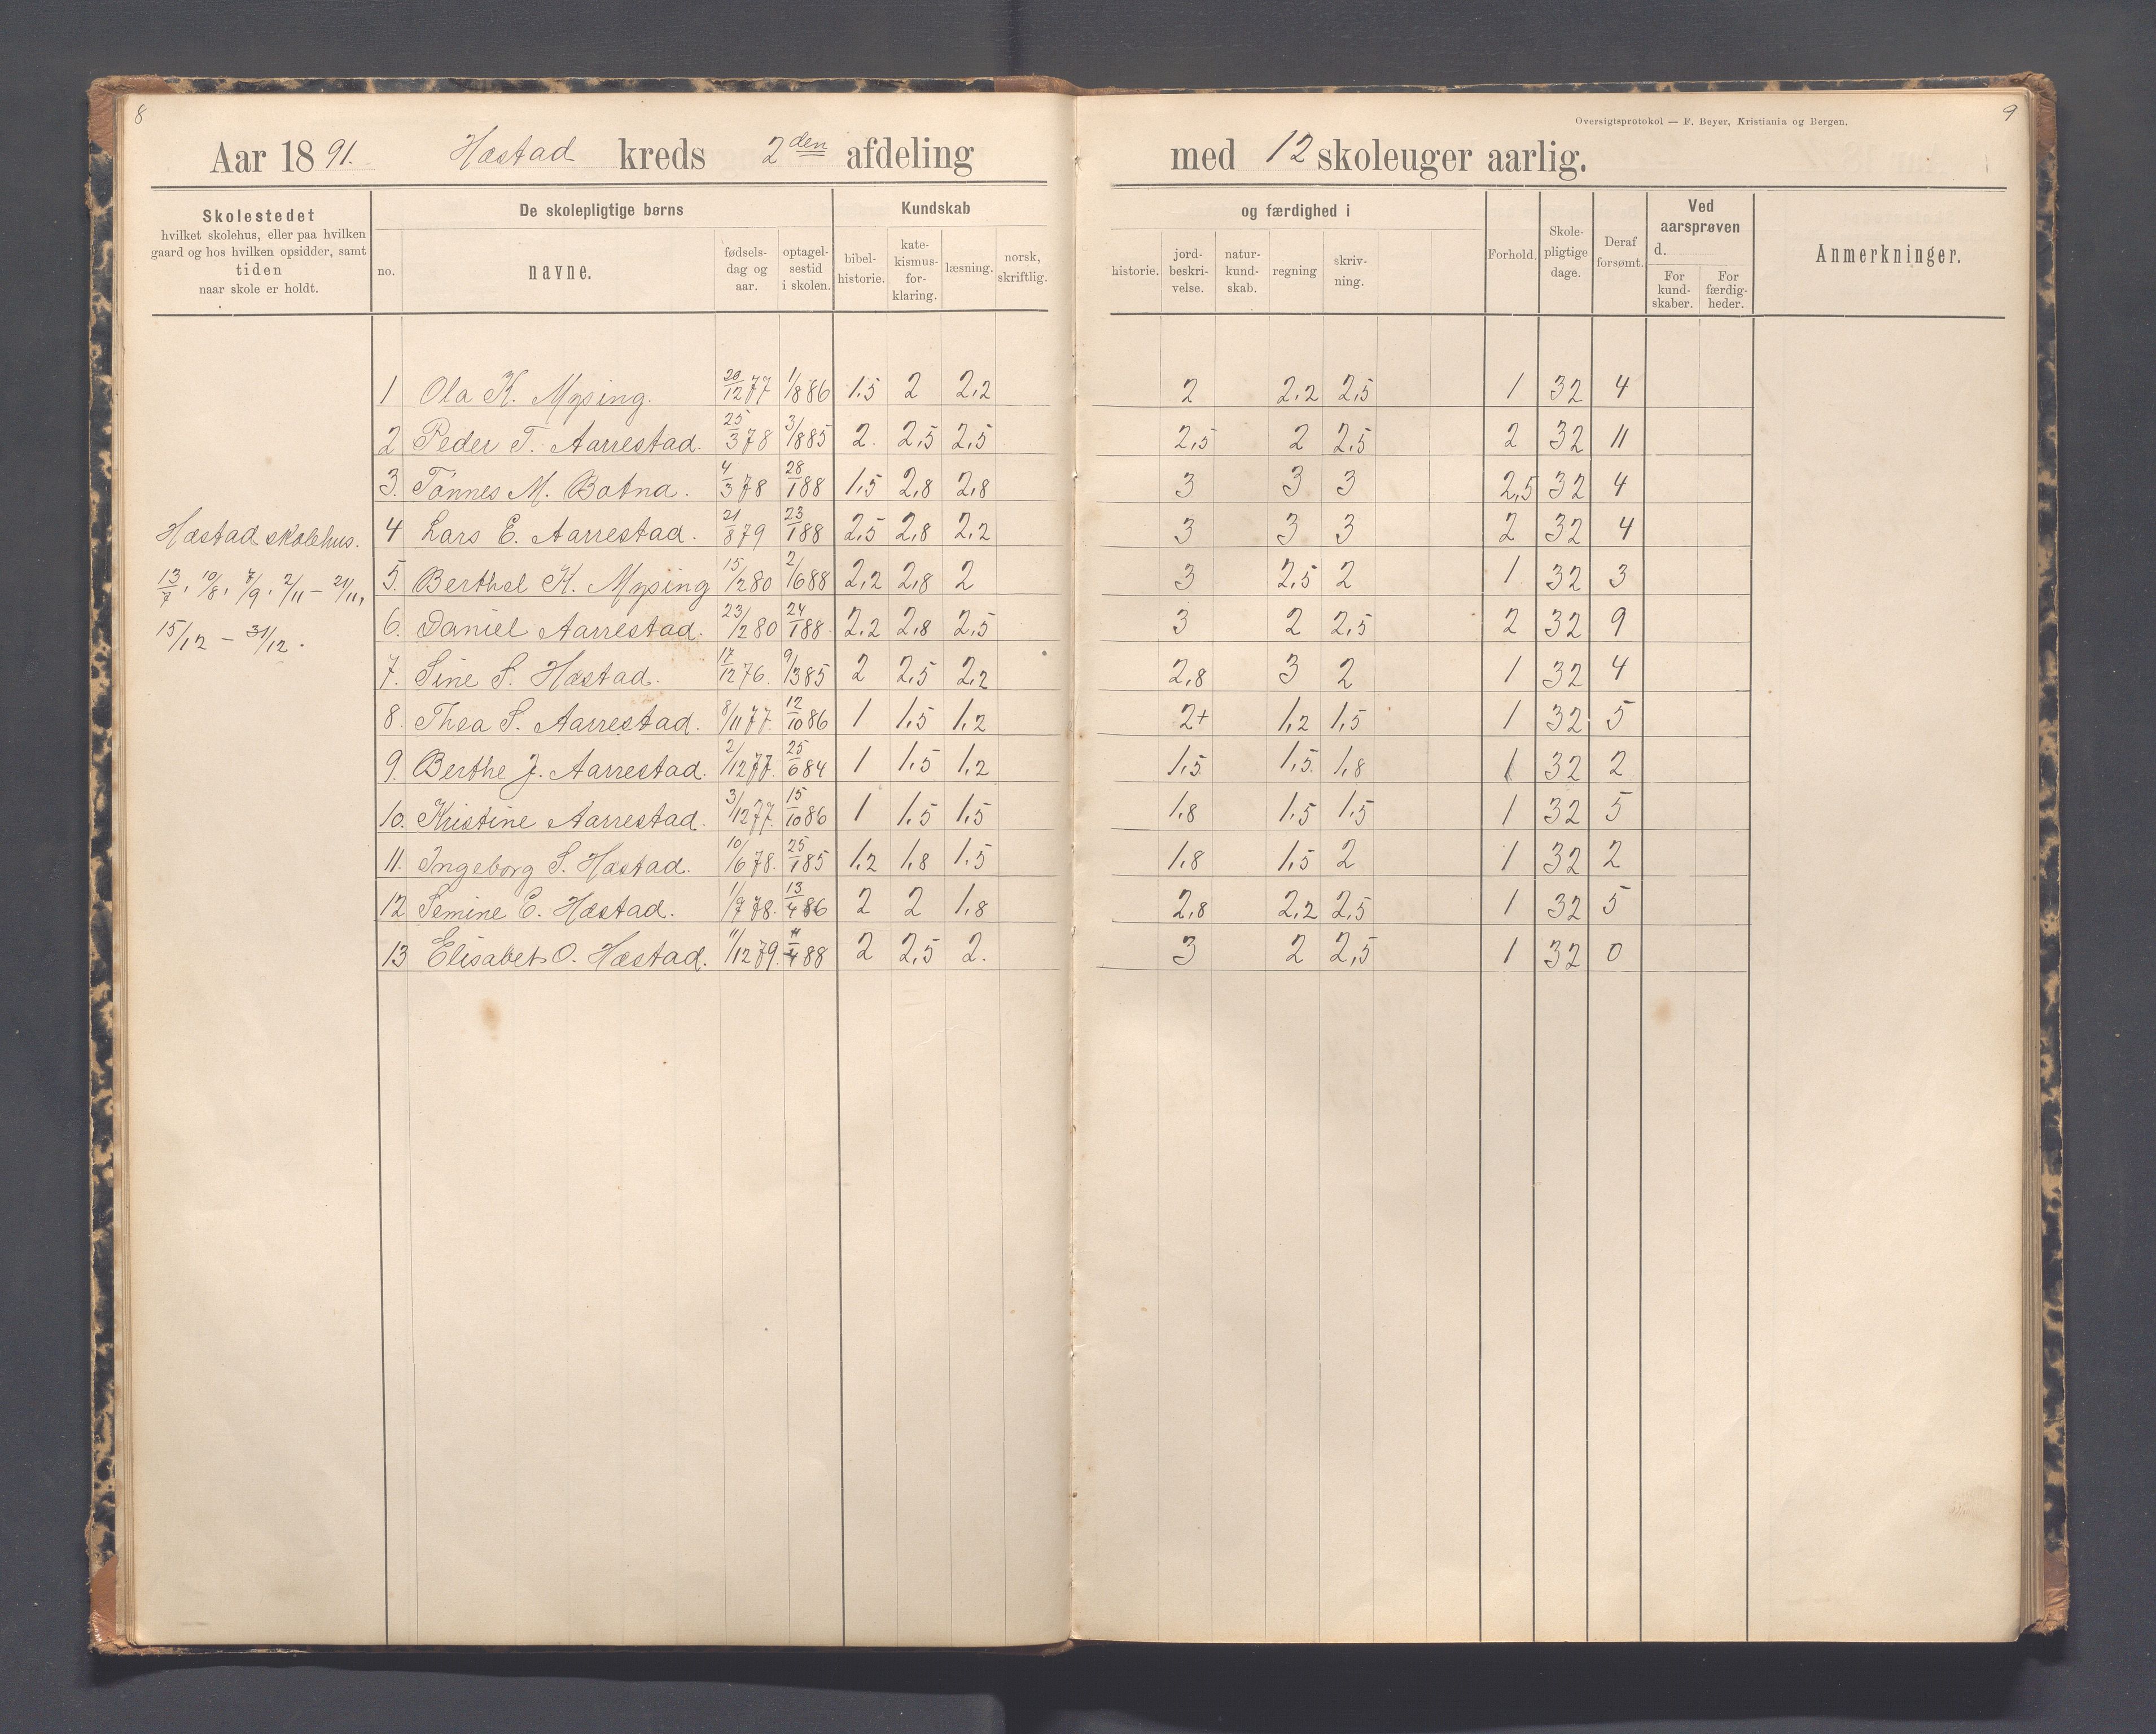 8
Aar 1891. Hæstad kreds 2den afdeling
Skolestedet
hvilket skolehus, eller paa hvilken
gaard og hos hvilken opsidder, samt
tiden
naar skole er holdt.
De skolepligtige børns
no.
navne.
fødsels-
dag og
aar.
optagel-
sestid
i skolen.
Kundskab
bibel-
historie.
kate-
kismus-
for-
klaring.
læsning.
norsk,
skriftlig.
Oversigtsprotokol — F. Beyer, Kristiania og Bergen.
9
med 12 skoleuger aarlig.
og færdighed i
historie.
jord-
beskri-
velse.
natur-
kund-
skab.
regning
skriv-
ning.
Forhold.
Skole-
pligtige
dage.
Deraf
forsømt.
Ved
aarsprøven
d.
For
kund-
skaber.
For
færdig-
heder.
Anmerkninger.
Hæstad skolehus.
13/7, 10/8, 7/9, 2/11 – 21/11,
15/12 – 31/12.
1 Ola K. Mysing. 20/12 77 1/8 86 1,5 2 2,2 2 2,2 2,5 1 32 4
2 Peder T. Aarrestad. 25/3 78 3/8 85 2. 2,5 2,5 2,5 2 2,5 2 32 11
3. Tønnes M. Botna. 4/3 78 28/1 88 1,5 2,8 2,8 3 3 3 2,5 32 4
4 Lars E. Aarrestad. 21/8 79 23/1 88 2,5 2,8 2,2 3 3 3 2 32 4
5. Berthel K. Mysing 15/12 80 2/6 88 2,2 2,8 2 3 2,5 2 1 32 3
6. Daniel Aarrestad. 23/12 80 24/1 88. 2,2 2,8 2,5 3 2 2,5 2 32 9
7. Sine S. Hæstad. 17/12 76. 9/3 85 2 2,5 2,2 2,8 3 2 1 32 4
8. Thea S. Aarrestad. 8/11 77. 12/10 86 1 1,5 1,2 2+ 1,2 1,5 1 32 5
9. Berthe J. Aarrestad. 2/12 77. 25/6 84 1 1,5 1,2 1,5 1,5. 1,8 1 32 2
10. Kristine Aarrestad. 3/12 77. 15/10 86 1 1,5 1,5 1,8 1,5 1,5 1 32 5
11. Ingeborg S. Hæstad. 10/6 78. 25/1 85 1,2 1,8 1,5 1,8 1,5 2 1 32 2
12 Semine E. Hæstad. 1/9 78. 13/4 86 2 2 1,8 2,8 2,2 2,5 1 32 5
13 Elisabet O. Hæstad. 11/12 79. 11/4 88 2 2,5 2. 3 2 2,5 1 32 0